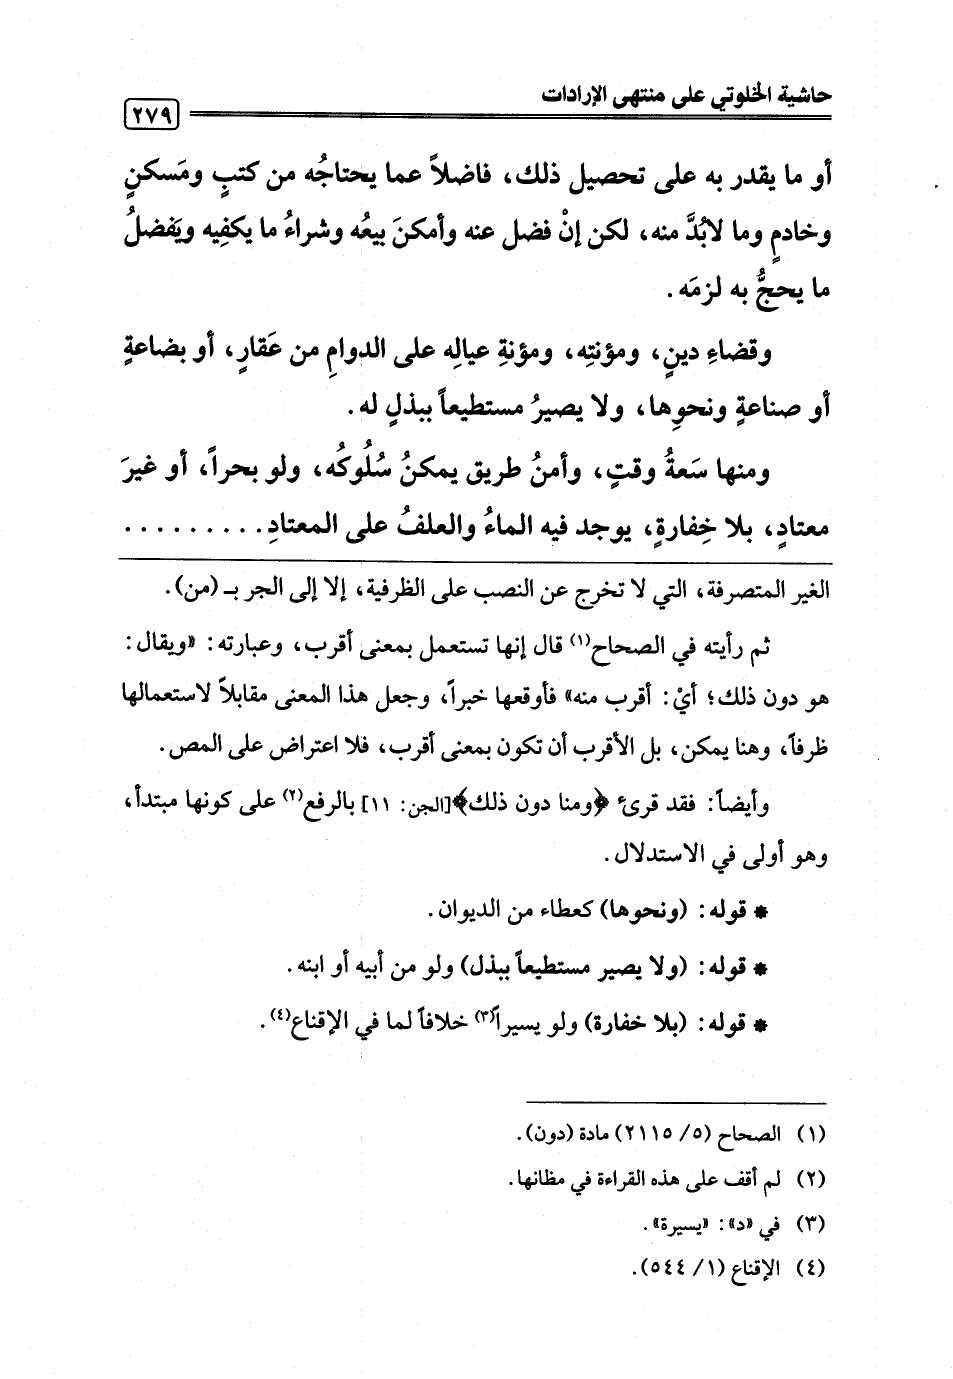 حاشية الخلوتي على منتهى الإرادات
٢٧٩
أو ما يقدر به على تحصيل ذلك، فاضلاً عما يحتاجُه من كتبٍ ومَسكنٍ
وخادمٍ وما لابُدَّ منه، لكن إنْ فضل عنه وأمكنَ بيعُه وشراءُ ما يكفِيه ويَفضلُ
ما يحجُّ به لزمَه.
وقضاءِ دينٍ، ومؤنتِه، ومؤنةِ عيالِه على الدوامِ من عَقارٍ، أو بضاعةٍ
أو صناعةٍ ونحوِها، ولا يصيرُ مستطيعاً ببذلٍ له.
ومنها سَعةُ وقتٍ، وأمنُ طريق يمكنُ سُلُوكُه، ولو بحراً، أو غيرَ
معتادٍ، بلا خِفارةٍ، يوجد فيه الماءُ والعلفُ على المعتادِ.........
الغير المتصرفة، التي لا تخرج عن النصب على الظرفية، إلا إلى الجر بـ (من).
ثم رأيته في الصحاح(١) قال إنها تستعمل بمعنى أقرب، وعبارته: «ويقال:
هو دون ذلك؛ أيْ: أقرب منه» فأوقعها خبراً، وجعل هذا المعنى مقابلاً لاستعمالها
ظرفاً، وهنا يمكن، بل الأقرب أن تكون بمعنى أقرب، فلا اعتراض على المص.
وأيضاً: فقد قرئ ﴿ومنا دون ذلك﴾[الجن: ١١] بالرفع(٢) على كونها مبتدأ،
وهو أولى في الاستدلال.
* قوله: (ونحوها) كعطاء من الديوان.
* قوله: (ولا يصير مستطيعاً ببذل) ولو من أبيه أو ابنه.
* قوله: (بلا خفارة) ولو يسيراً(٣) خلافاً لما في الإقناع(٤).
(١) الصحاح (٥/ ٢١١٥) مادة (دون).
(٢) لم أقف على هذه القراءة في مظانها.
(٣) في «د»: «يسيرة».
(٤) الإقناع (١/ ٥٤٤).